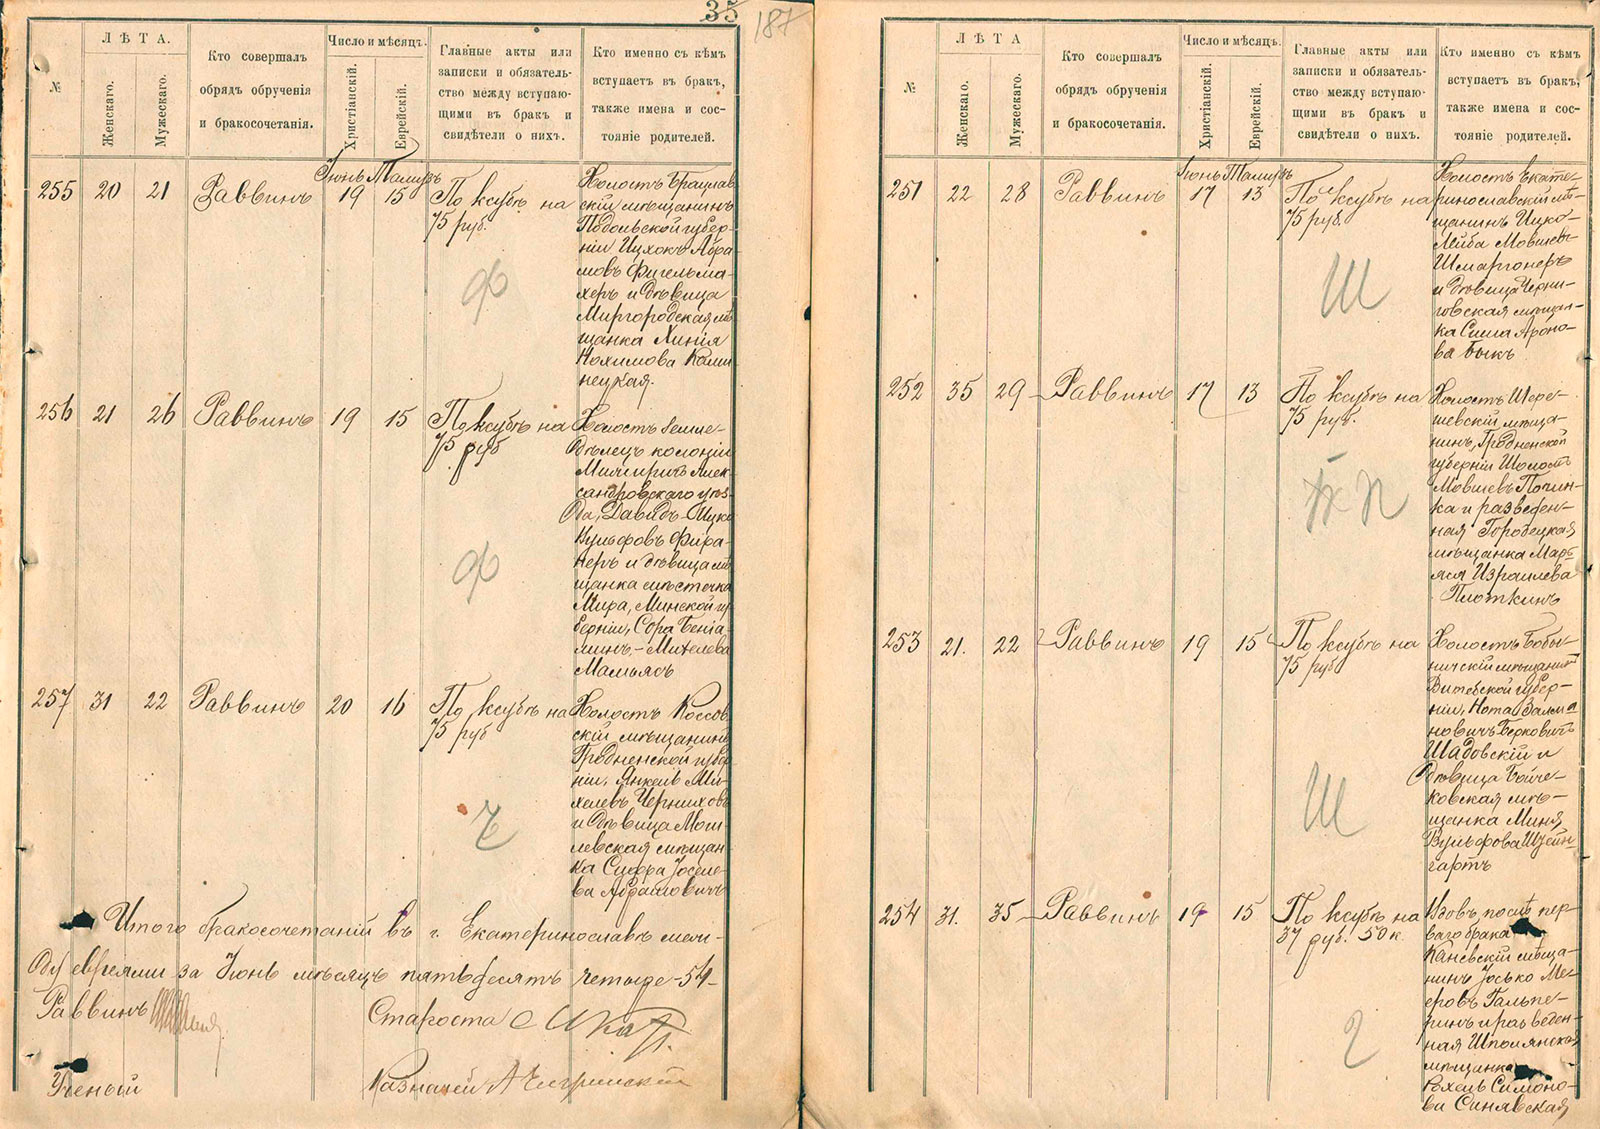 35
187
№
ЛѢТА.
Женскаго.
Мужескаго.
Кто совершалъ
обрядъ обрученія
и бракосочетанія.
Число и мѣсяцъ.
Христіанскій.
Еврейскій.
Главные акты или
записки и обязатель-
ство между вступаю-
щими въ бракъ и
свидѣтели о нихъ.
Кто именно съ кѣмъ
вступаетъ въ бракъ,
также имена и сос-
тояніе родителей.
Іюнь Тамузъ
255 20 21 Раввинъ 19 15
По ксубѣ на
75 руб.
Ф
Холостъ Брацлав
скій мѣщанинъ
Подольской губер-
ніи Ицхокъ Абра
мовъ Фигельма-
херъ и дѣвица
Миргородская мѣ
щанка Хиня
Нохимова Каме
нецкая.
256 21 26 Раввинъ 19 15
По ксубѣ на
75 руб
Ф
Холостъ земле-
дѣлецъ колоніи
Алек-
сандровскаго уѣз-
да, Давидъ-Ицко
Вульфовъ Фира-
неръ и дѣвица мѣ
щанка мѣстечка
Мира, Минской гу
берніи, Сора Бенiа-
минъ-Михелева
257 31 22 Раввинъ 20 16
По ксубѣ на
75 руб
Ч
Холостъ Коссов
скій мѣщанинъ
Гродненской губер
ніи, Янкель Ми-
хелевъ Черниховъ
и дѣвица Моги
левская мѣщан-
ка Сифра Іоселе
ва Абрамовичъ
Итого бракосочетаній въ г. Екатеринославѣ меж-
ду евреями за Іюнь мѣсяцъ пятьдесятъ четыре-54-
Раввинъ
Староста
Ученый
Казначей
№
ЛѢТА
Женскаго.
Мужескаго.
Кто совершалъ
обрядъ обрученія
и бракосочетанія.
Число и мѣсяцъ.
Христіанскій.
Еврейскій.
Главные акты или
записки и обязатель-
ство между вступаю-
щими въ бракъ и
свидѣтели о нихъ.
Кто именно съ кѣмъ
вступаетъ въ бракъ,
также имена и сос-
тояніе родителей.
Іюнь Тамузъ
251 22 28 Раввинъ 17 13
По ксубѣ на
75 руб.
Ш
Холостъ Екате-
ринославскій мѣ-
щанинъ Ицко-
Лейба Мовшевъ
Шмаргонеръ
и дѣвица Черни-
говская мѣщан-
ка Сима Ароно-
ва Быкъ
252 35 29 Раввинъ 17 13
По ксубѣ на
75 руб.
П
Холостъ Шере-
шевскій мѣща-
нинъ, Гродненской
губерніи Шоломъ
Мовшевъ Почин-
ка и разведен-
ная Городецкая
мѣщанка Марь-
яся Израилева
Плоткинъ
253 21. 22 Раввинъ 19 15
По ксубѣ на
75 руб
Ш
Холостъ Бобы-
ничскій мѣщанинъ
Витебской губер-
ніи, Нота Залма
новичъ Берковичъ
Шадовскій и
дѣвица Бойче-
ковская мѣ-
щанка Миня
Вульфова Штейн-
гартъ
254 31. 35 Раввинъ 19 15
По ксубѣ на
37 руб. 50 к.
Г
Вдовъ послѣ пер
ваго брака
Каневскій мѣща-
нинъ Іосько Ме-
еровъ Гальпе-
ринъ и разведен-
ная Шполянская
мѣщанка
Рохель Симоно-
ва Синявская